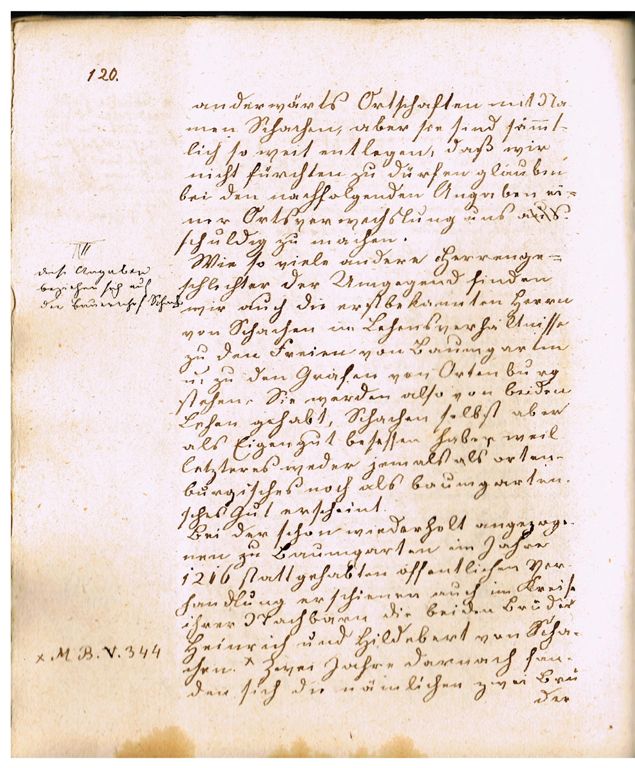 120.
anderwärts Ortschaften mit Na-
men Schachen, aber sie sind sämmt-
lich so weit entlegen, daß wir
nicht fürchten zu dürfen glauben
bei den nachfolgenden Angaben ei-
ner Ortsverwechslung uns
schuldig zu machen.
Wie so viele andere Herrenge-
schlechter der Umgegend finden
wir auch die erstbekannten Herrn
von Schachen im Lehensverhältnisse
zu den Freien von Baumgarten
u. zu den Grafen von Ortenburg
stehen. Sie werden also von beiden
Lehen gehabt, Schachen selbst aber
als Eigengut besessen haben weil
letzteres weder jemals als orten-
burgisches noch als baumgarten-
sches Gut erscheint.
Bei der schon wiederholt angezoge-
nen zu Baumgarten im Jahre
1216 stattgehabten öffentlichen Ver-
handlung erschienen auch im Kreise
ihrer Nachbarn die beiden Brüder
Heinrich und Hildebert von Scha-
chen. x Zwei Jahre darnach fan-
den sich die nämlichen zwei Brü
der
diese Angaben
beziehen sich auf
den Bauernhof Schach
x M. B. V. 344